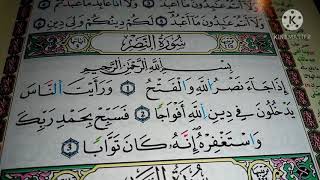 وَلَا أَنتُمْ عَٰبِدُونَ مَا أَعْبُدُ
وَلَا أَنَا عَابِدٌ مَّا عَبَدتُّمْ
وَلَا أَنتُمْ عَٰبِدُونَ مَا أَعْبُدُ لَكُمْ دِينُكُمْ وَلِيَ دِينِ
سُورَةُ النَّصْرِ
بِسْمِ اللَّهِ الرَّحْمَٰنِ الرَّحِيمِ
إِذَا جَاءَ نَصْرُ اللَّهِ وَالْفَتْحُ ١ وَرَأَيْتَ النَّاسَ
يَدْخُلُونَ فِي دِينِ اللَّهِ أَفْوَاجًا ٢ فَسَبِّحْ بِحَمْدِ رَبِّكَ
وَاسْتَغْفِرْهُ إِنَّهُ كَانَ تَوَّابًا ٣
سُورَةُ
KINEMASTER